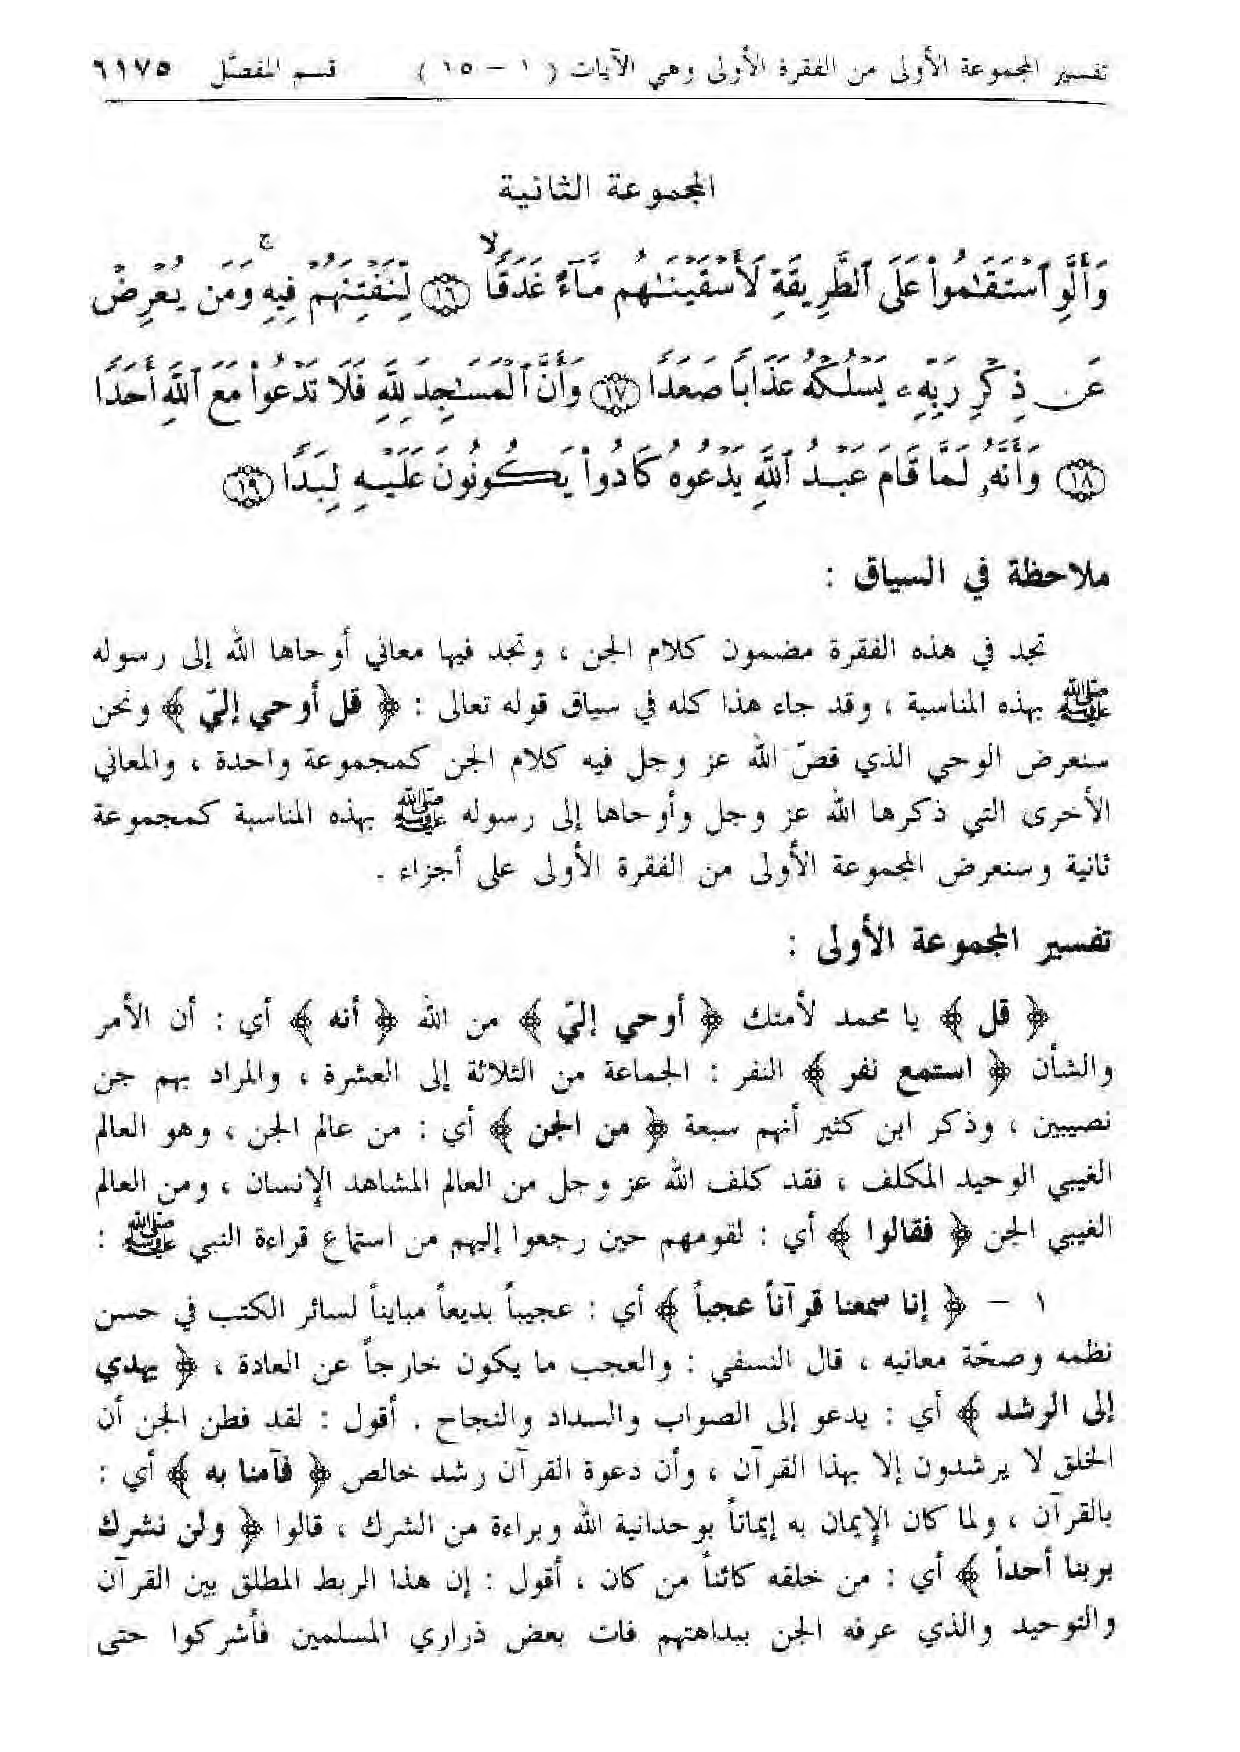 تفسير المجموعة الأولى من الفقرة الأولى وهي الآيات ( ١ - ١٥ ) قسم المفصَّل ٦١٧٥
المجموعة الثانية
وَأَلَّوِ ٱسْتَقَـٰمُوا۟ عَلَى ٱلطَّرِيقَةِ لَأَسْقَيْنَـٰهُم مَّآءً غَدَقًا ۙ ﴿١٦﴾ لِّنَفْتِنَهُمْ فِيهِ ۚ وَمَن يُعْرِضْ
عَن ذِكْرِ رَبِّهِۦ يَسْلُكْهُ عَذَابًا صَعَدًا ﴿١٧﴾ وَأَنَّ ٱلْمَسَـٰجِدَ لِلَّهِ فَلَا تَدْعُوا۟ مَعَ ٱللَّهِ أَحَدًا
﴿١٨﴾ وَأَنَّهُۥ لَمَّا قَامَ عَبْدُ ٱللَّهِ يَدْعُوهُ كَادُوا۟ يَكُونُونَ عَلَيْهِ لِبَدًا ﴿١٩﴾
ملاحظة في السياق :
تجد في هذه الفقرة مضمون كلام الجن ، وتجد فيها معاني أوحاها الله إلى رسوله
ﷺ بهذه المناسبة ، وقد جاء هذا كله في سياق قوله تعالى : ﴿ قل أوحي إليّ ﴾ ونحن
سنعرض الوحي الذي قصّ الله عز وجل فيه كلام الجن كمجموعة واحدة ، والمعاني
الأخرى التي ذكرها الله عز وجل وأوحاها إلى رسوله ﷺ بهذه المناسبة كمجموعة
ثانية وسنعرض المجموعة الأولى من الفقرة الأولى على أجزاء .
تفسير المجموعة الأولى :
﴿ قل ﴾ يا محمد لأمتك ﴿ أوحي إليّ ﴾ من الله ﴿ أنه ﴾ أي : أن الأمر
والشأن ﴿ استمع نفر ﴾ النفر : الجماعة من الثلاثة إلى العشرة ، والمراد بهم جن
نصيبين ، وذكر ابن كثير أنهم سبعة ﴿ من الجن ﴾ أي : من عالم الجن ، وهو العالم
الغيبي الوحيد المكلف ، فقد كلف الله عز وجل من العالم المشاهد الإنسان ، ومن العالم
الغيبي الجن ﴿ فقالوا ﴾ أي : لقومهم حين رجعوا إليهم من استماع قراءة النبي ﷺ :
١ - ﴿ إنا سمعنا قرآناً عجباً ﴾ أي : عجيباً بديعاً مبايناً لسائر الكتب في حسن
نظمه وصحّة معانيه ، قال النسفي : والعجب ما يكون خارجاً عن العادة ، ﴿ يهدي
إلى الرشد ﴾ أي : يدعو إلى الصواب والسداد والنجاح . أقول : لقد فطن الجن أن
الخلق لا يرشدون إلا بهذا القرآن ، وأن دعوة القرآن رشد خالص ﴿ فآمنا به ﴾ أي :
بالقرآن ، ولما كان الإيمان به إيماناً بوحدانية الله وبراءة من الشرك ، قالوا ﴿ ولن نشرك
بربنا أحداً ﴾ أي : من خلقه كائناً من كان ، أقول : إن هذا الربط المطلق بين القرآن
والتوحيد والذي عرفه الجن ببداهتهم فات بعض ذراري المسلمين فأشركوا حتى